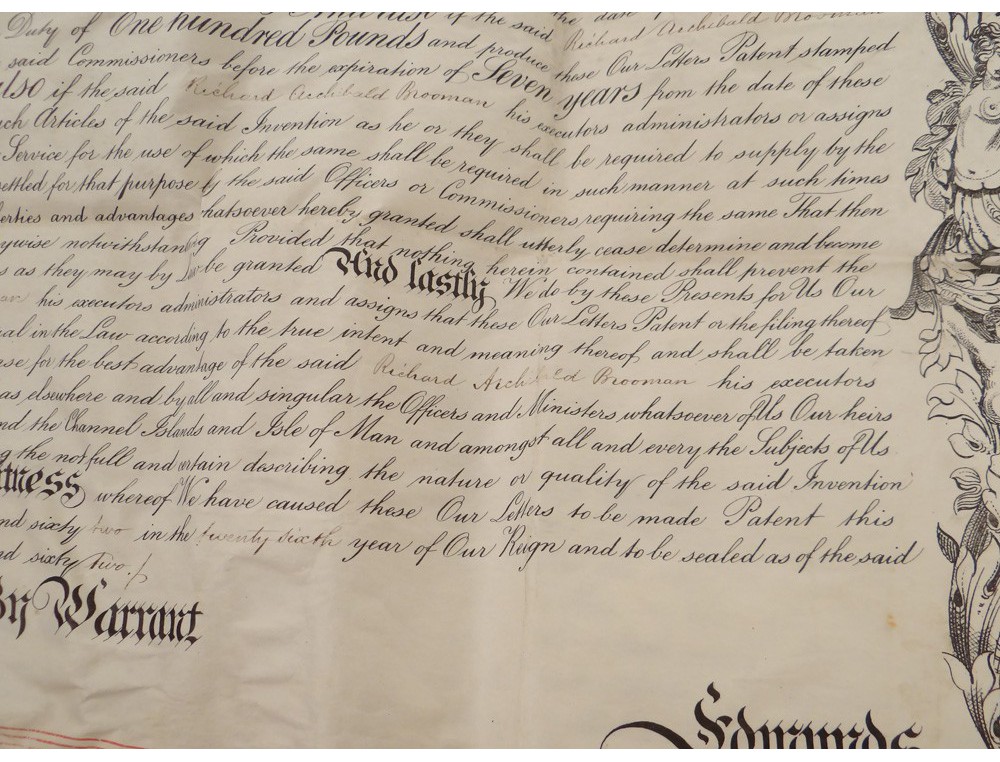 if the said the date
Duty of One hundred Pounds and produce these Our Letters Patent stamped
said Commissioners before the expiration of Seven years from the date of these
also if the said Richard Archibald Brooman his executors administrators or assigns
Articles of the said Invention as he or they shall be required to supply by the
Service for the use of which the same shall be required in such manner at such times
settled for that purpose by the said Officers or Commissioners requiring the same That then
and advantages whatsoever hereby granted shall utterly cease determine and become
notwithstanding Provided that nothing herein contained shall prevent the
as they may by Law be granted And lastly We do by these Presents for Us Our
his executors administrators and assigns that these Our Letters Patent or the filing thereof
in the Law according to the true intent and meaning thereof and shall be taken
for the best advantage of the said Richard Archibald Brooman his executors
as elsewhere and by all and singular the Officers and Ministers whatsoever of Us Our heirs
and the Channel Islands and Isle of Man and amongst all and every the Subjects of Us
the not full and certain describing the nature or quality of the said Invention
whereof We have caused these Our Letters to be made Patent this
and sixty two in the twenty sixth year of Our Reign and to be sealed as of the said
and sixty two.
By Warrant
Edmunds